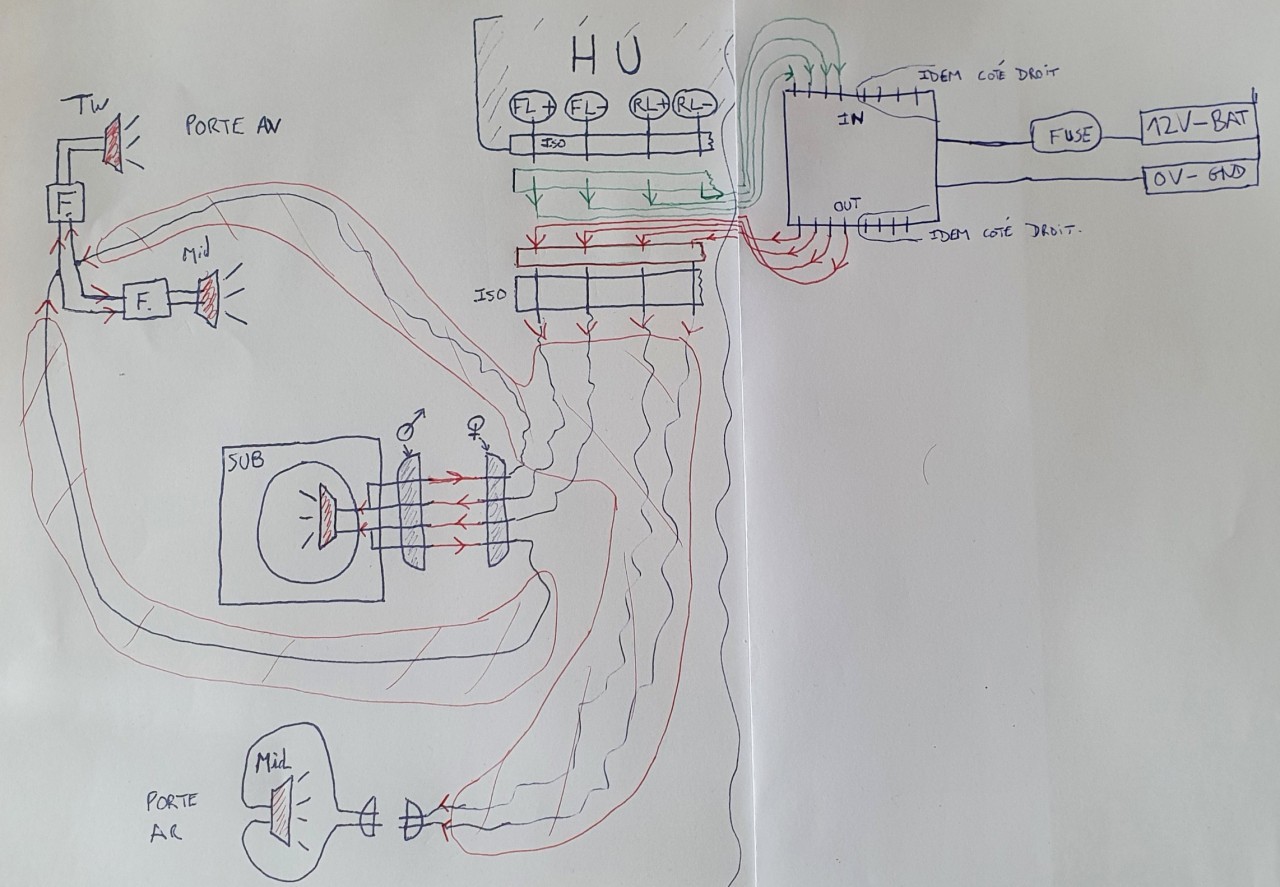 HU
FL+ FL- RL+ RL-
ISO
TW
PORTE AV
F.
Mid
F.
IDEM COTÉ DROIT
IN
FUSE
12V-BAT
0V- GND
OUT
IDEM COTÉ DROIT.
ISO
♂ ♀
SUB
Mid
PORTE
AR